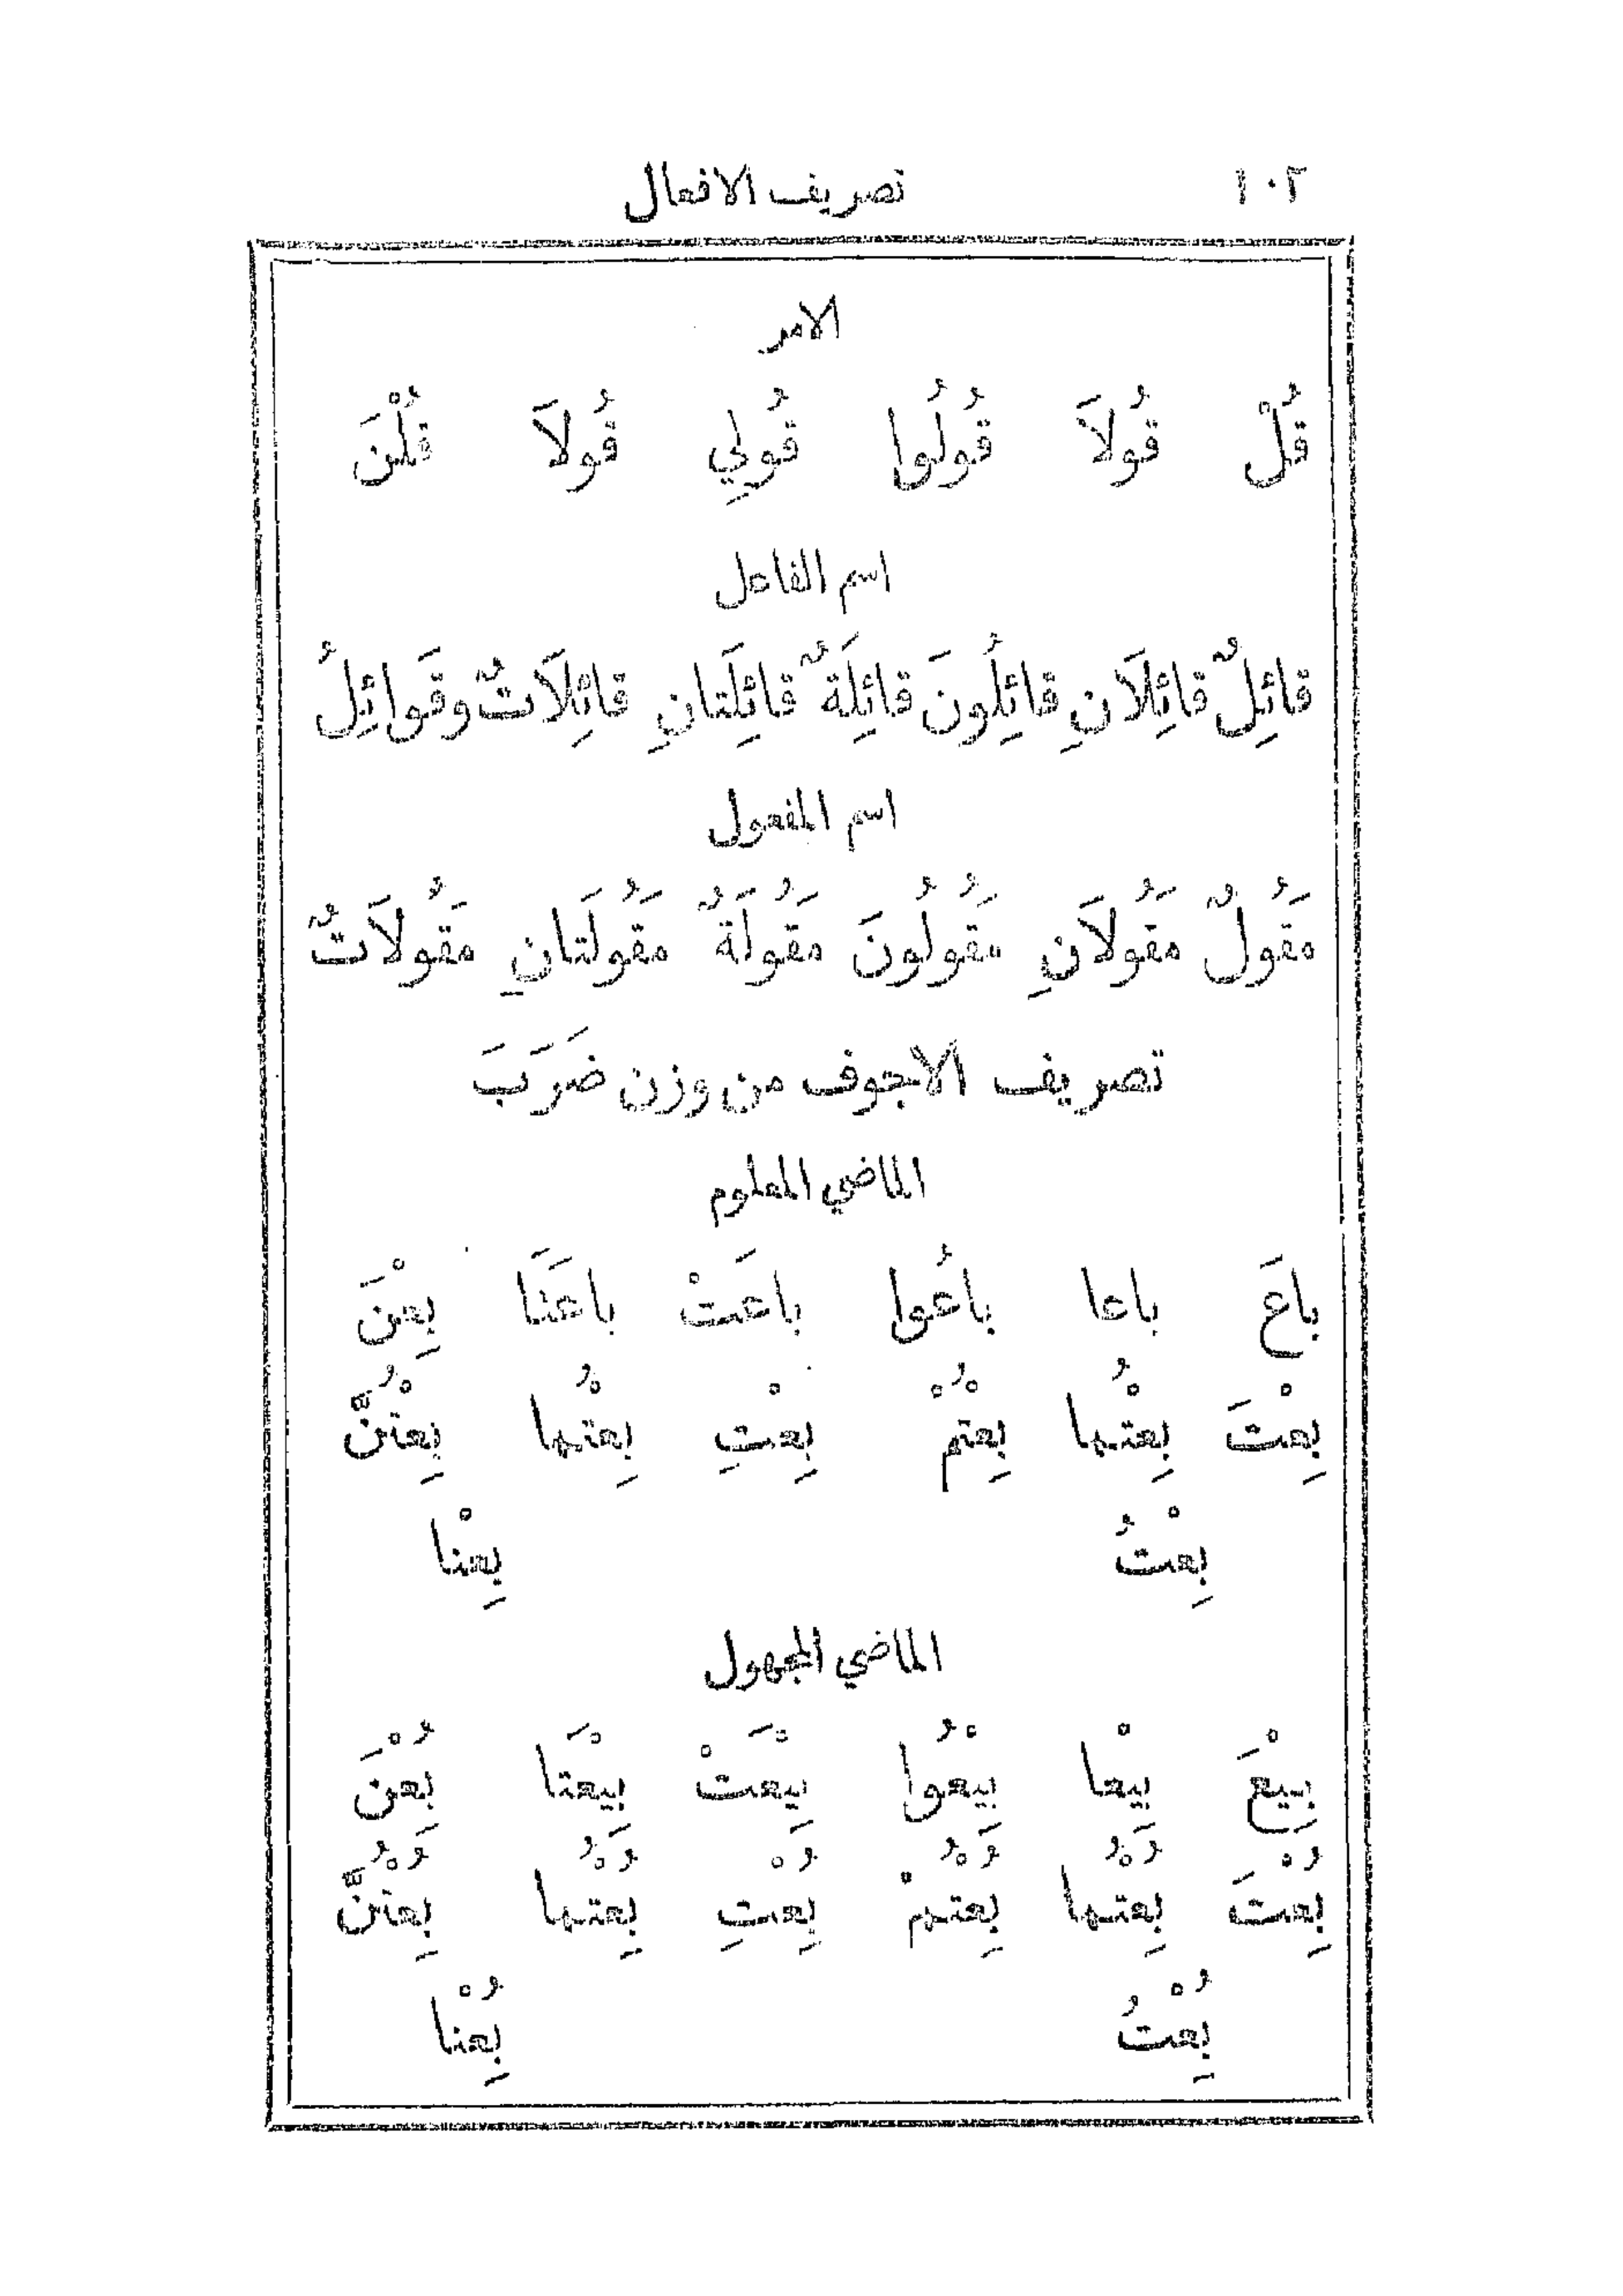 ١٠٢ تصريف الافعال
الامر
قُلْ قُولَا قُولُوا قُولِي قُولَا قُلْنَ
اسم الفاعل
قائِلٌ قائِلَانِ قائِلُونَ قائِلَةٌ قائِلَتانِ قائِلَاتٌ وقَوائِلُ
اسم المفعول
مَقُولٌ مَقُولَانِ مَقُولُونَ مَقُولَةٌ مَقُولَتانِ مَقُولَاتٌ
تصريف الاجوف من وزن ضَرَبَ
الماضي المعلوم
باعَ باعا باعُوا باعَتْ باعَتَا بِعْنَ
بِعْتَ بِعْتُما بِعْتُمْ بِعْتِ بِعْتُما بِعْتُنَّ
بِعْتُ بِعْنا
الماضي المجهول
بِيْعَ بِيْعا بِيْعُوا بِيْعَتْ بِيْعَتا بُِعْنَ
بُِعْتَ بُِعْتُما بُِعْتُمْ بُِعْتِ بُِعْتُما بُِعْتُنَّ
بُِعْتُ بُِعْنا